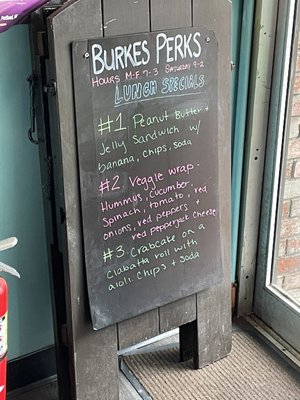 Burkes Perks
Hours M-F 7-3 Saturday 9-2
Lunch Specials
#1. Peanut Butter +
Jelly Sandwich w/
banana, chips, soda
#2. Veggie wrap.
Hummus, cucumber,
Spinach, tomato, red
onions, red peppers +
red pepperjack cheese
#3. Crabcake on a
Ciabatta roll with
aioli. Chips + Soda